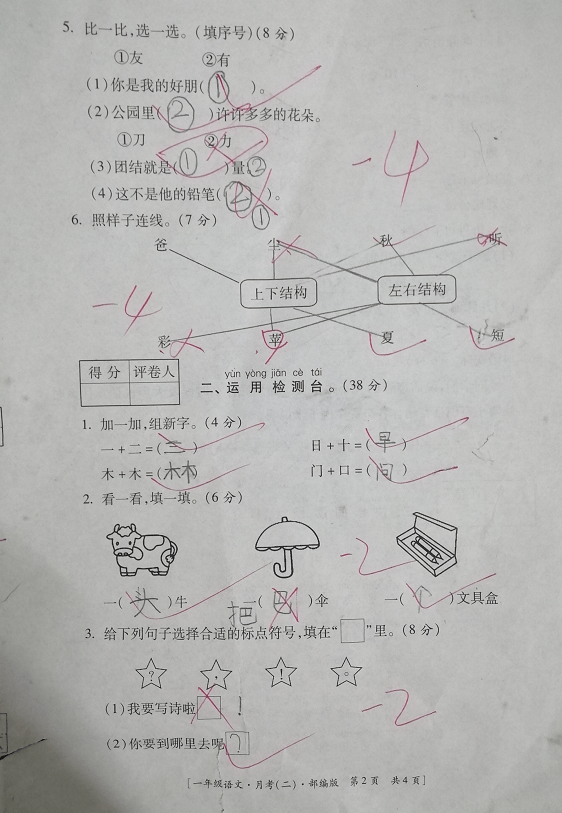 5. 比一比,选一选。(填序号)(8分)
①友 ②有
(1)你是我的好朋(①)。
(2)公园里(②)许许多多的花朵。
①刀 ②力
(3)团结就是(①)量。②
(4)这不是他的铅笔(②)。
①
-4
6. 照样子连线。(7分)
爸 尘 秋 听
上下结构 左右结构
-4
彩 苹 夏 短
得分 评卷人
yùn yòng jiǎn cè tái
二、运用检测台。(38分)
1. 加一加,组新字。(4分)
一+二=(三) 日+十=(早)
木+木=(林) 门+口=(问)
2. 看一看,填一填。(6分)
-2
一(头)牛 一(巴)伞 一(个)文具盒
把
3. 给下列句子选择合适的标点符号,填在“□”里。(8分)
? , ! 。
(1)我要写诗啦□ !
-2
(2)你要到哪里去呢?
[一年级语文·月考(二)·部编版 第2页 共4页]